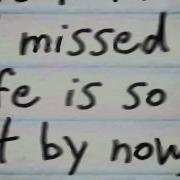 missed
fe is so
t by now